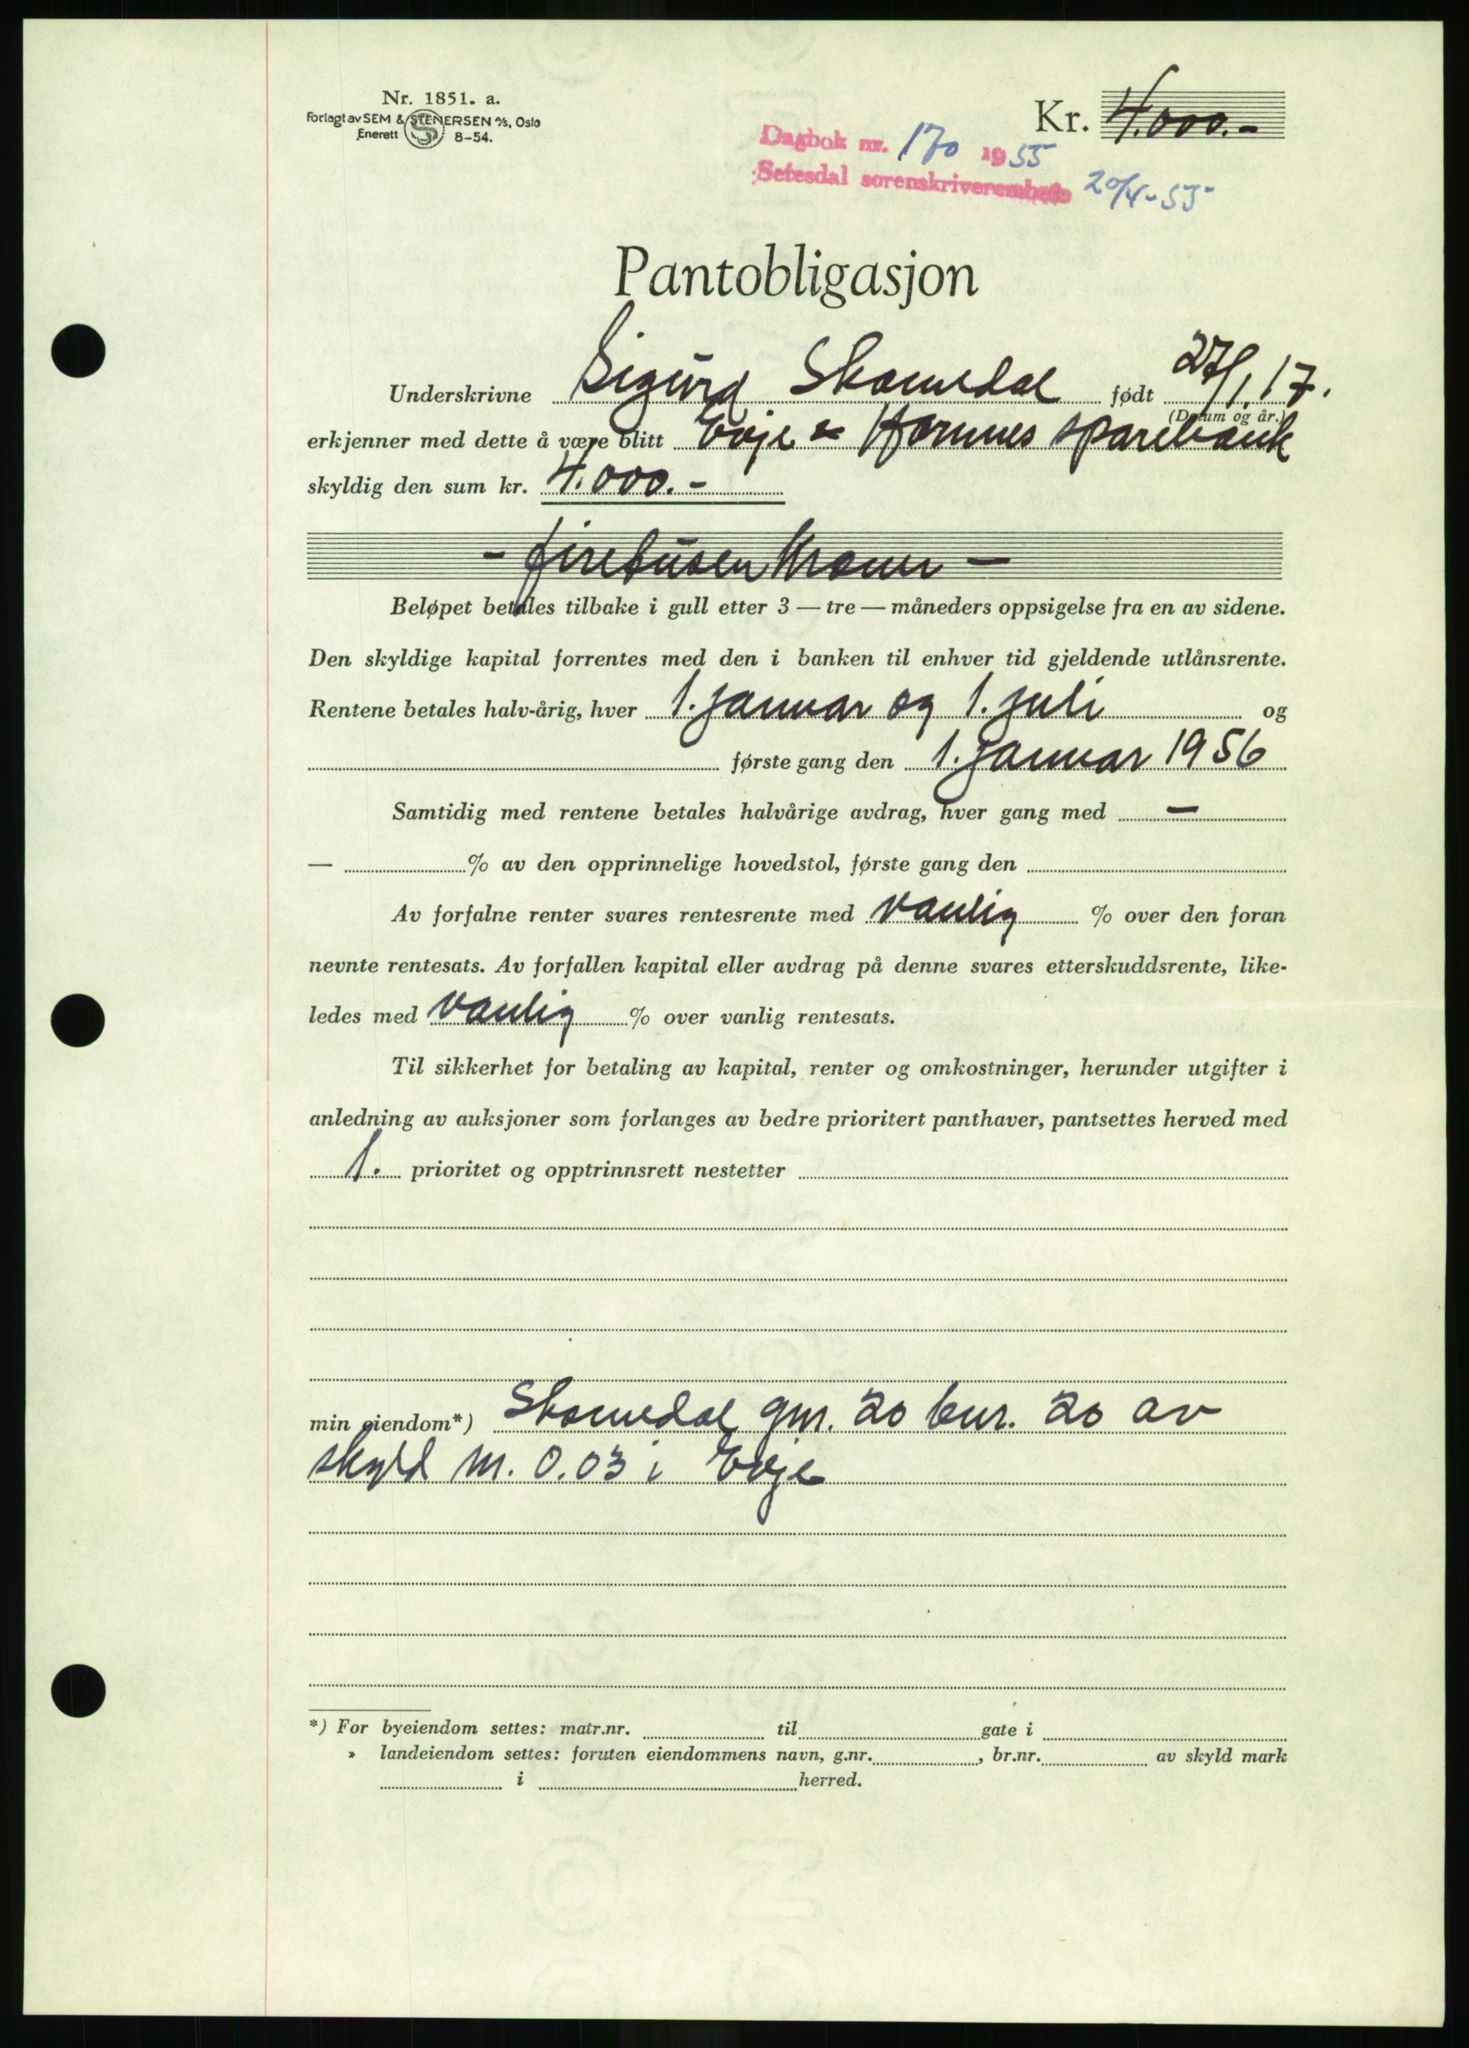 Nr. 1851. a.
Forlagt av SEM & STENERSEN A/S, Oslo
Enerett S 8-54.
Kr. 4.000.-
Dagbok nr. 170 1955
Setesdal sorenskriverembete 20/4-55
Pantobligasjon
Underskrivne Sigurd Skomedal født 27/1.17.
(Datum og år.)
erkjenner med dette å være blitt Evje & Hornnes sparebank
skyldig den sum kr. 4.000.-
- firetusen kroner -
Beløpet betales tilbake i gull etter 3 — tre — måneders oppsigelse fra en av sidene.
Den skyldige kapital forrentes med den i banken til enhver tid gjeldende utlånsrente.
Rentene betales halv-årig, hver 1. januar og 1. juli og
første gang den 1. januar 1956
Samtidig med rentene betales halvårige avdrag, hver gang med —
— % av den opprinnelige hovedstol, første gang den
Av forfalne renter svares rentesrente med vanlig % over den foran
nevnte rentesats. Av forfallen kapital eller avdrag på denne svares etterskuddsrente, like-
ledes med vanlig % over vanlig rentesats.
Til sikkerhet for betaling av kapital, renter og omkostninger, herunder utgifter i
anledning av auksjoner som forlanges av bedre prioritert panthaver, pantsettes herved med
1. prioritet og opptrinnsrett nestetter
min eiendom*) Skomedal gnr. 20 bnr. 20 av
skyld m. 0.03 i Evje
*) For byeiendom settes: matr.nr. til gate i
» landeiendom settes: foruten eiendommens navn, g.nr. , br.nr. av skyld mark
i herred.